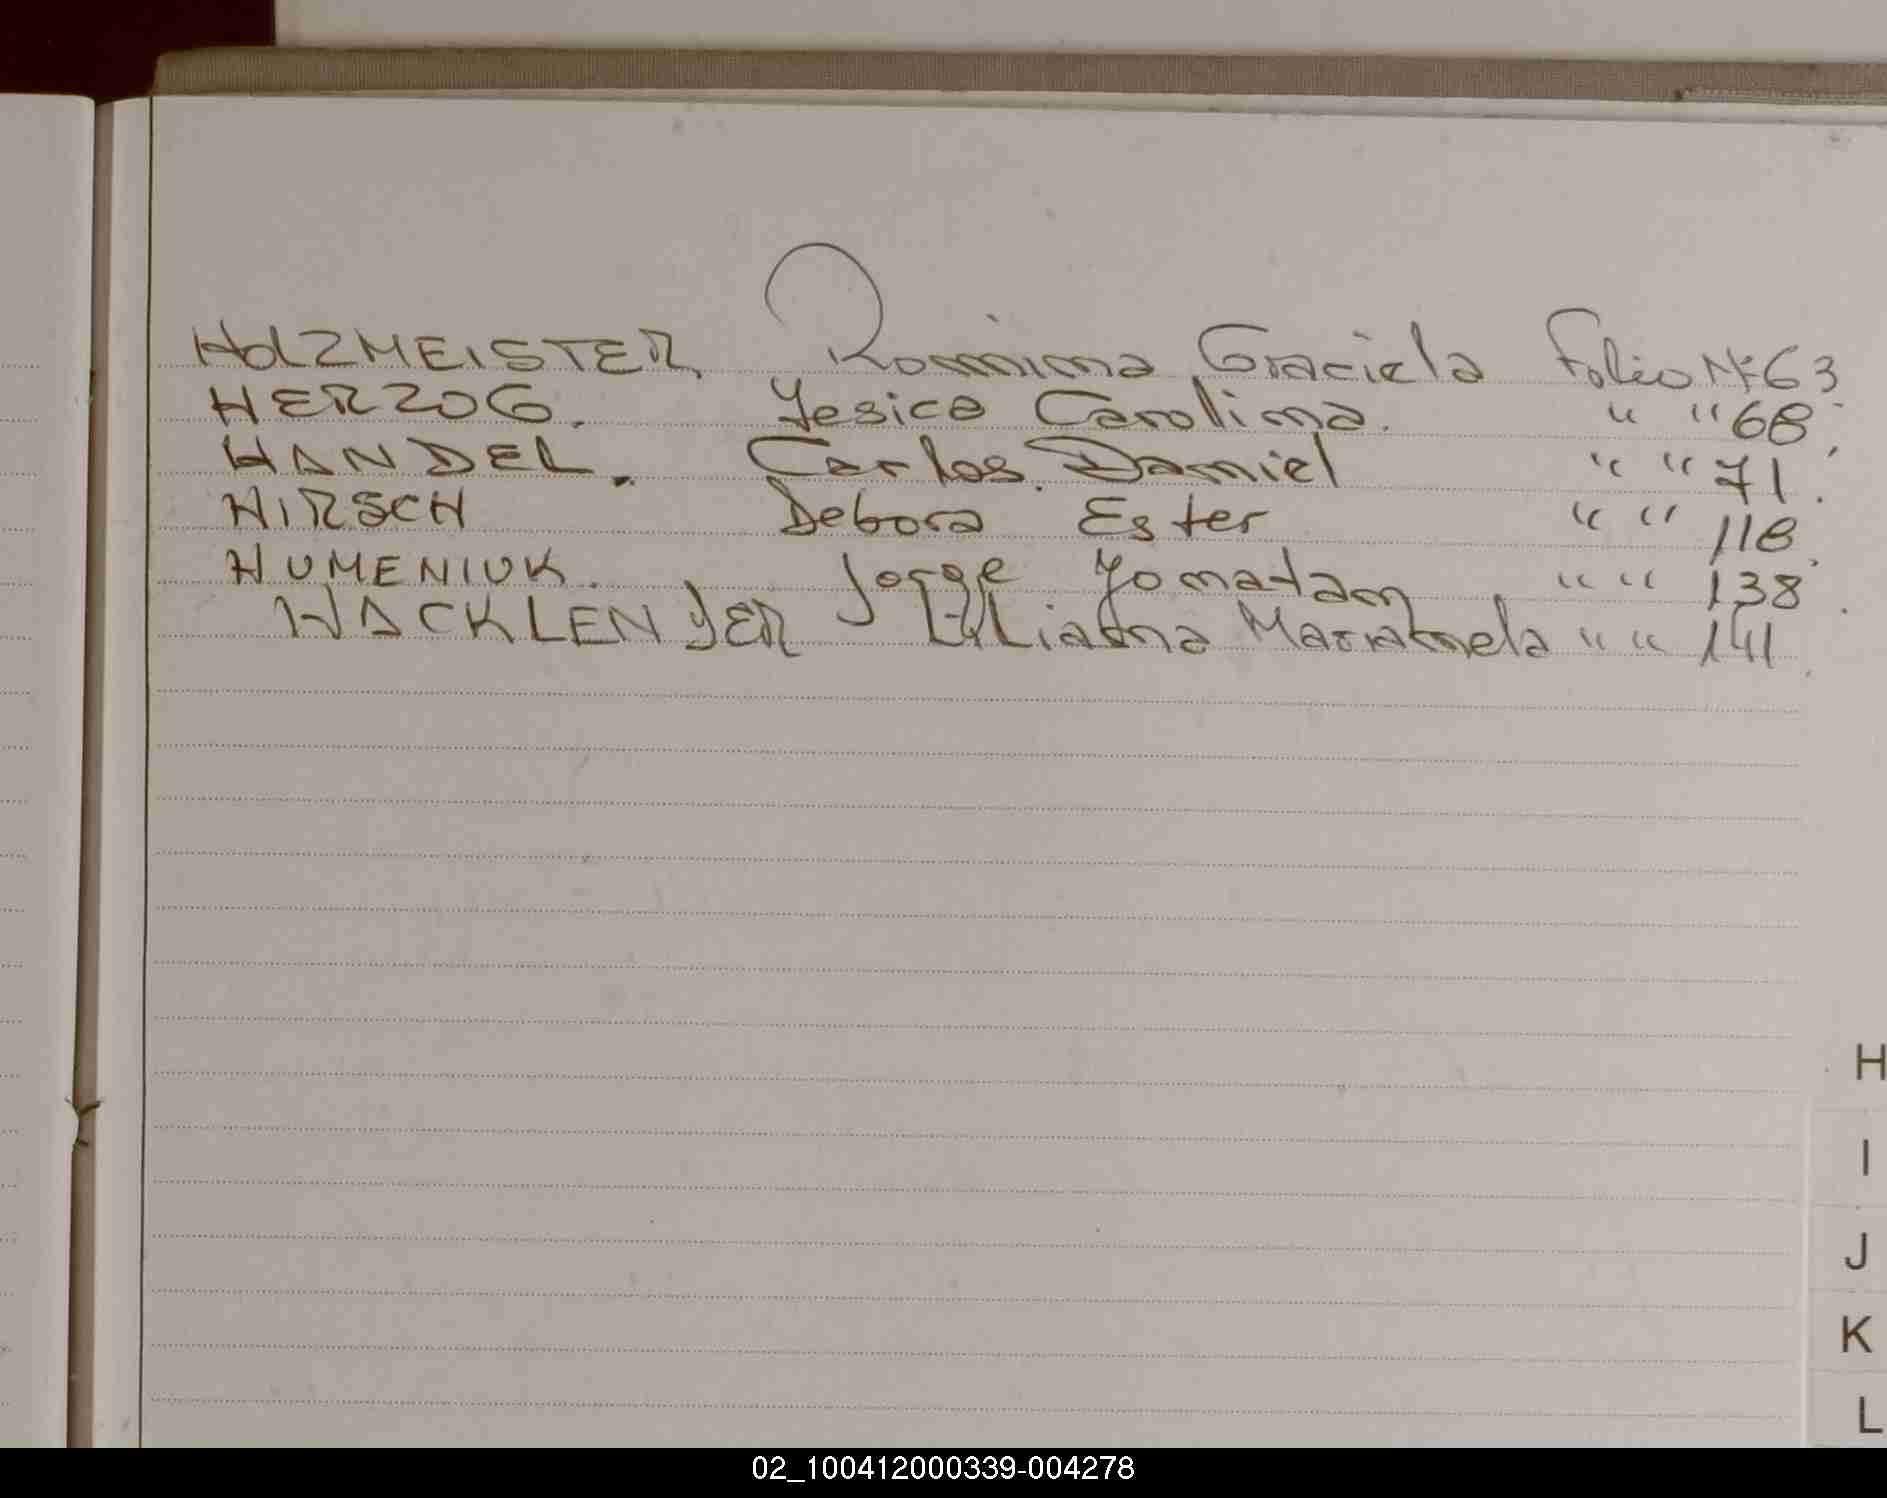 HOLZMEISTER Romina Graciela Folio Nº 63
HERZOG. Yesica Carolina. " " 68.
HANDEL. Carlos Daniel " " 71.
HIRSCH Debora Ester " " 118
HUMENIUK. Jorge Yonatan " " 138.
HACKLENDER Liliana Marianela " " 141.
H
I
J
K
L
02_100412000339-004278